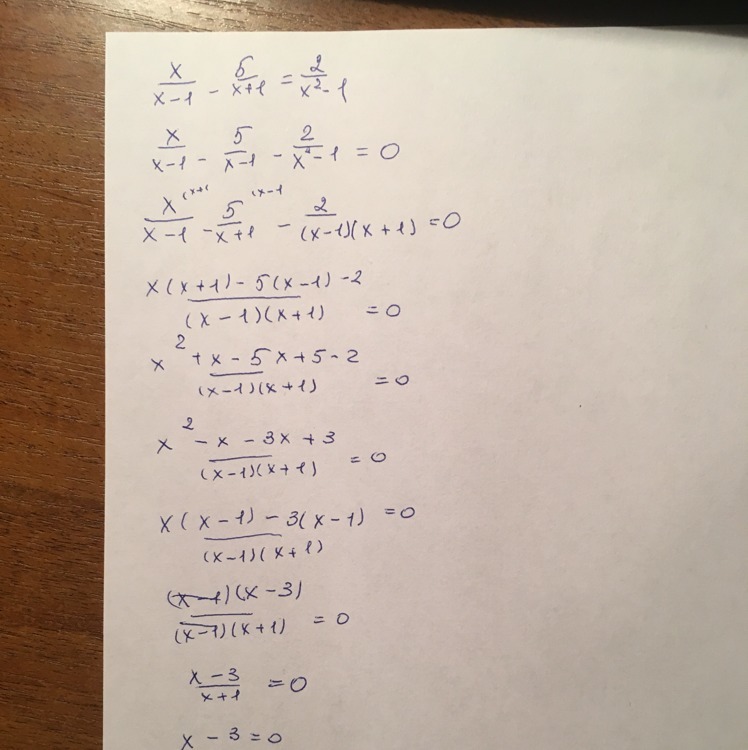 x/(x-1) - 5/(x+1) = 2/(x²-1)
x/(x-1) - 5/(x-1) - 2/(x²-1) = 0
x^(x+1/(x-1) - 5^(x-1/(x+1) - 2/((x-1)(x+1)) = 0
(x(x+1)-5(x-1)-2)/((x-1)(x+1)) = 0
(x²+x-5x+5-2)/((x-1)(x+1)) = 0
(x²-x-3x+3)/((x-1)(x+1)) = 0
(x(x-1)-3(x-1))/((x-1)(x+1)) = 0
((x-1)(x-3))/((x-1)(x+1)) = 0
(x-3)/(x+1) = 0
x-3=0